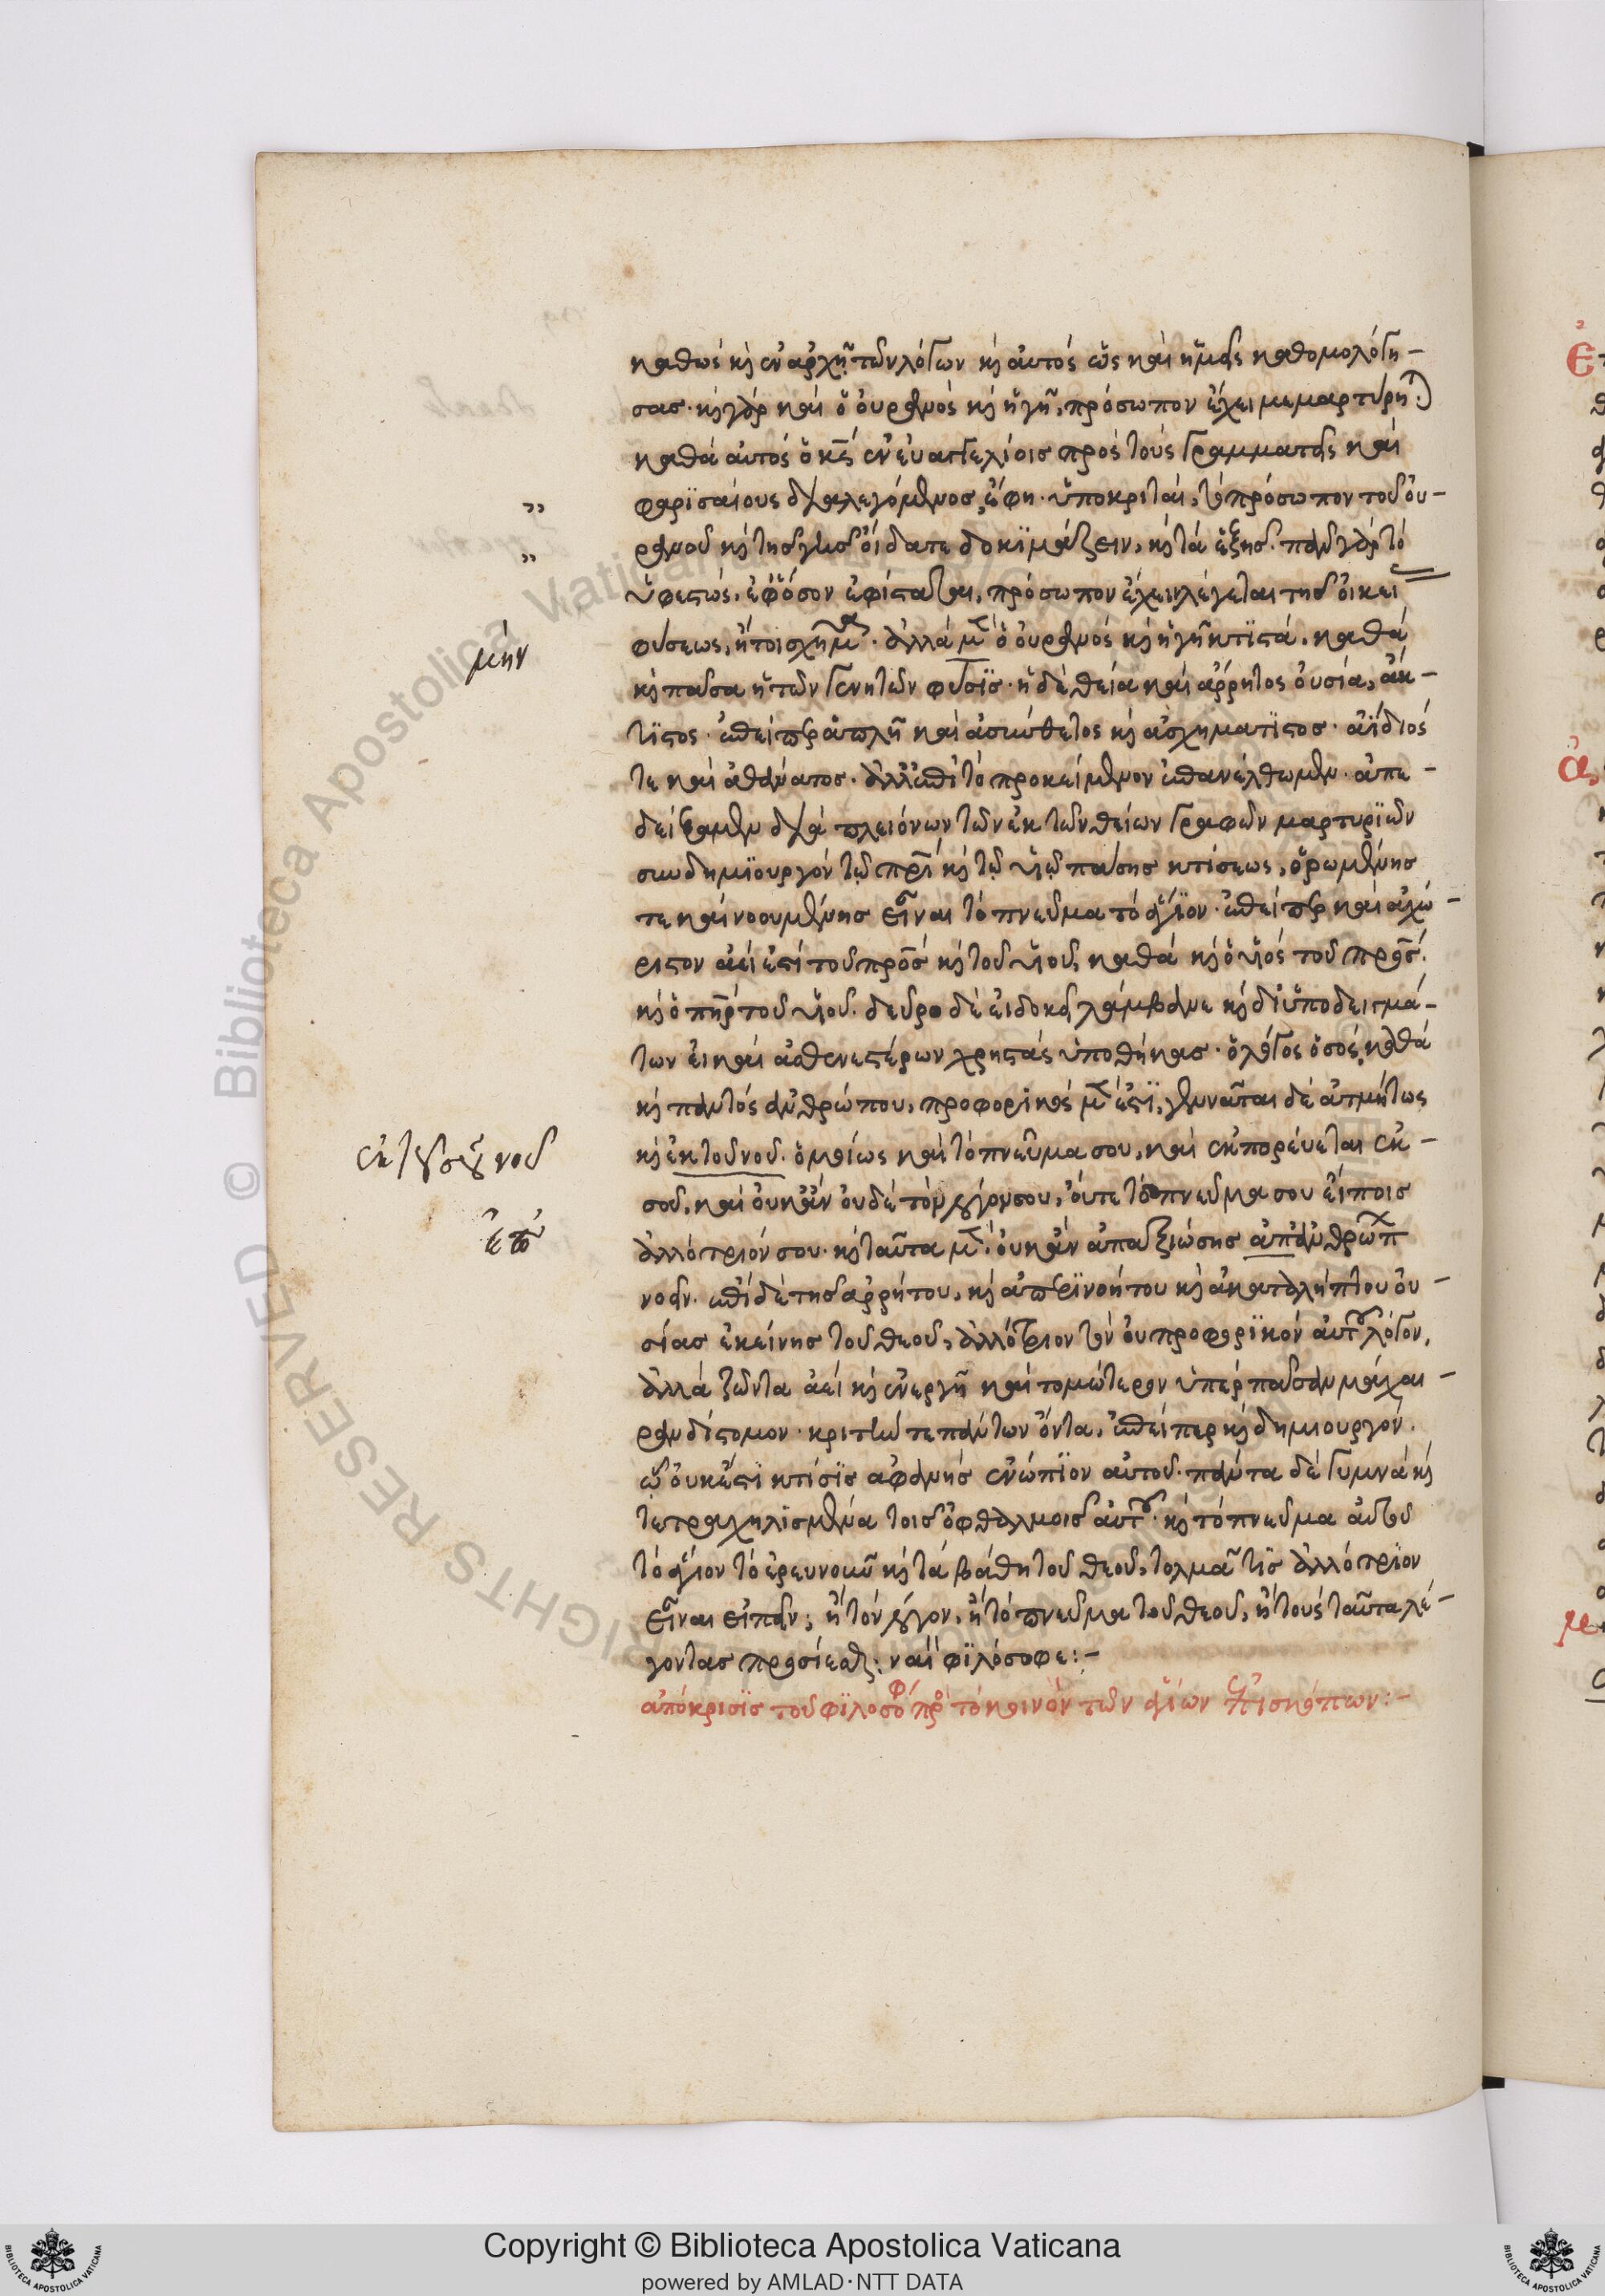 καθὼς κ(αὶ) ἐν ἀρχῇ τῶν λόγων κ(αὶ) αὐτὸς ὡς καὶ ἡμᾶς καθομολόγη-
σας· κ(αὶ) γὰρ καὶ ὁ οὐρανὸς κ(αὶ) ἡ γῆ, πρόσωπον ἔχει μεμαρτύρη(ται)
καθὰ αὐτὸς ὁ κς ἐν εὐαγγελίοις πρὸς τοὺς γραμματεῖς καὶ
φαρϊσαίους διαλεγόμενος, ἔφη· ὑποκριταὶ, τὸ πρόσωπον τοῦ οὐ-
ρανοῦ κ(αὶ) τῆς γῆς οἴδατε δοκϊμάζειν, κ(αὶ) τὰ ἑξῆς. πᾶν γὰρ τὸ
ὑφεστὼς, ἐφ' ὅσον ἐφίσταται, πρόσωπον ἔχειν λέγεται τῆς οἰκεί
φύσεως, ἤτοι σχῆμα· ἀλλὰ μ(ὲν) ὁ οὐρανὸς κ(αὶ) ἡ γῆ κτϊστὰ, καθὰ
κ(αὶ) πᾶσα ἡ τῶν γενητῶν φύσϊς· ἡ δὲ θεία καὶ ἄρρητος οὐσία, ἄκ-
τϊστος· ἐπείπερ ἁπλῆ καὶ ἀσύνθετος κ(αὶ) ἀσχημάτϊστος· ἀΐδιός
τε καὶ ἀθάνατος. ἀλλ' ἐπὶ τὸ προκείμενον ἐπανέλθωμεν· ἀπε-
δείξαμεν διὰ πλειόνων τῶν ἐκ τῶν θείων γραφῶν μαρτυρϊῶν
συνδημϊουργὸν τῷ πρὶ κ(αὶ) τῷ υἱῷ πάσης κτίσεως, ὁρωμένης
τε καὶ νοουμένης εἶναι τὸ πνεῦμα τὸ ἅγϊον· ἐπείπερ καὶ ἀχώ-
ριστον ἀεὶ ἐστὶ τοῦ πρὸς κ(αὶ) τοῦ υἱοῦ, καθὰ κ(αὶ) ὁ υἱὸς τοῦ πρς.
κ(αὶ) ὁ πηρ τοῦ υἱοῦ. δεῦρο δὲ εἰ δοκεῖ λάμβανε κ(αὶ) δι' ὑποδειγμά-
των εἰ καὶ ἀσθενεστέρων χρηστὰς ὑποθήκας· ὁ λόγος ὁ σὸς, καθὰ
κ(αὶ) παντὸς ἀνθρώπου, προφορϊκὸς μ(έν) ἐστϊ, γεννᾶται δὲ ἀτμήτως
κ(αὶ) ἐκ τοῦ νοῦ. ὁμοίως καὶ τὸ πνεῦμα σου, καὶ ἐκπορεύεται ἐκ-
σοῦ, καὶ οὐκ ἂν οὐδὲ τὸν λόγον σου, οὔτε τὸ πνεῦμα σου εἴποις
ἀλλότριόν σου· κ(αὶ) ταῦτα μ(ὲν) οὐκ ἂν ἀπαξιώσῃς ἀπ' ἀνθρώπ(ων)
νοεῖν. ἐπὶ δὲ τῆς ἀρρήτου, κ(αὶ) ἀπερϊνοήτου κ(αὶ) ἀκαταλήπτου οὐ-
σίας ἐκείνης τοῦ θεοῦ, ἀλλότριον τὸν οὐ προφορϊκὸν αὐτοῦ λόγον,
ἀλλὰ ζῶντα ἀεὶ κ(αὶ) ἐνεργῆ καὶ τομώτερον ὑπὲρ πᾶσαν μάχαι-
ραν δίστομον· κριτήν τε πάντων ὄντα, ἐπείπερ κ(αὶ) δημιουργόν.
ᾧ οὐκ ἔστϊ κτίσϊς ἀφανὴς ἐνώπϊον αὐτοῦ· πάντα δὲ γυμνὰ κ(αὶ)
τετραχηλϊσμένα τοῖς ὀφθαλμοῖς αὐτοῦ· κ(αὶ) τὸ πνεῦμα αὐτοῦ
τὸ ἅγιον τὸ ἐρευνοῦν κ(αὶ) τὰ βάθη τοῦ θεοῦ, τολμᾷ τϊς ἀλλότρϊον
εἶναι εἰπεῖν; ἢ τὸν λόγον, ἢ τὸ πνεῦμα τοῦ θεοῦ, ἢ τοὺς ταῦτα λέ-
γοντας προσίεσθ(αι); ναὶ φϊλόσοφε:-
ἀπόκρισϊς τοῦ φϊλοσόφ(ου) πρὸ(ς) τὸ κοινὸν τῶν ἁγίων ἐπισκόπων:-
μὴν
ἐκ τοῦ σοῦ νοῦ
ἐπὶ